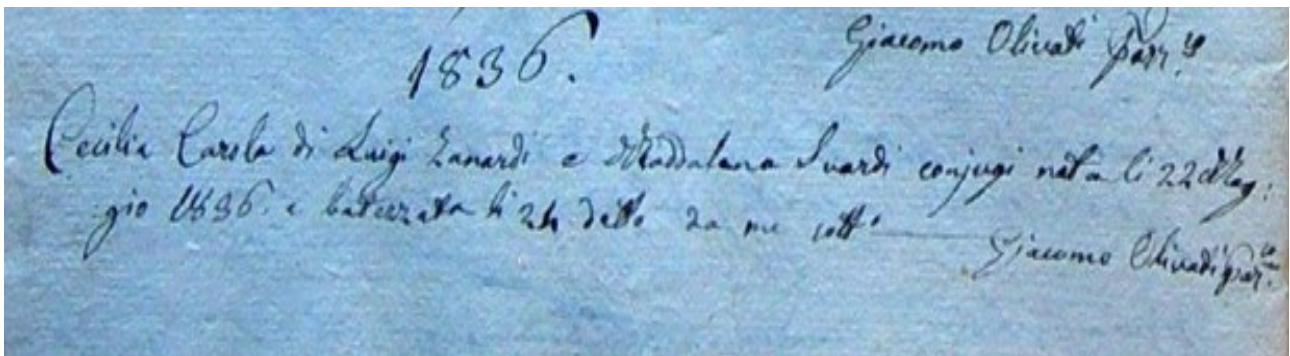 Giacomo Olivati Parr.º
1836.
Cecilia Carola di Luigi Zanardi e Maddalena Suardi conjugi nata li 22 Mag:
gio 1836. e batezzata li 24 detto da me sott.º
Giacomo Olivati Par.